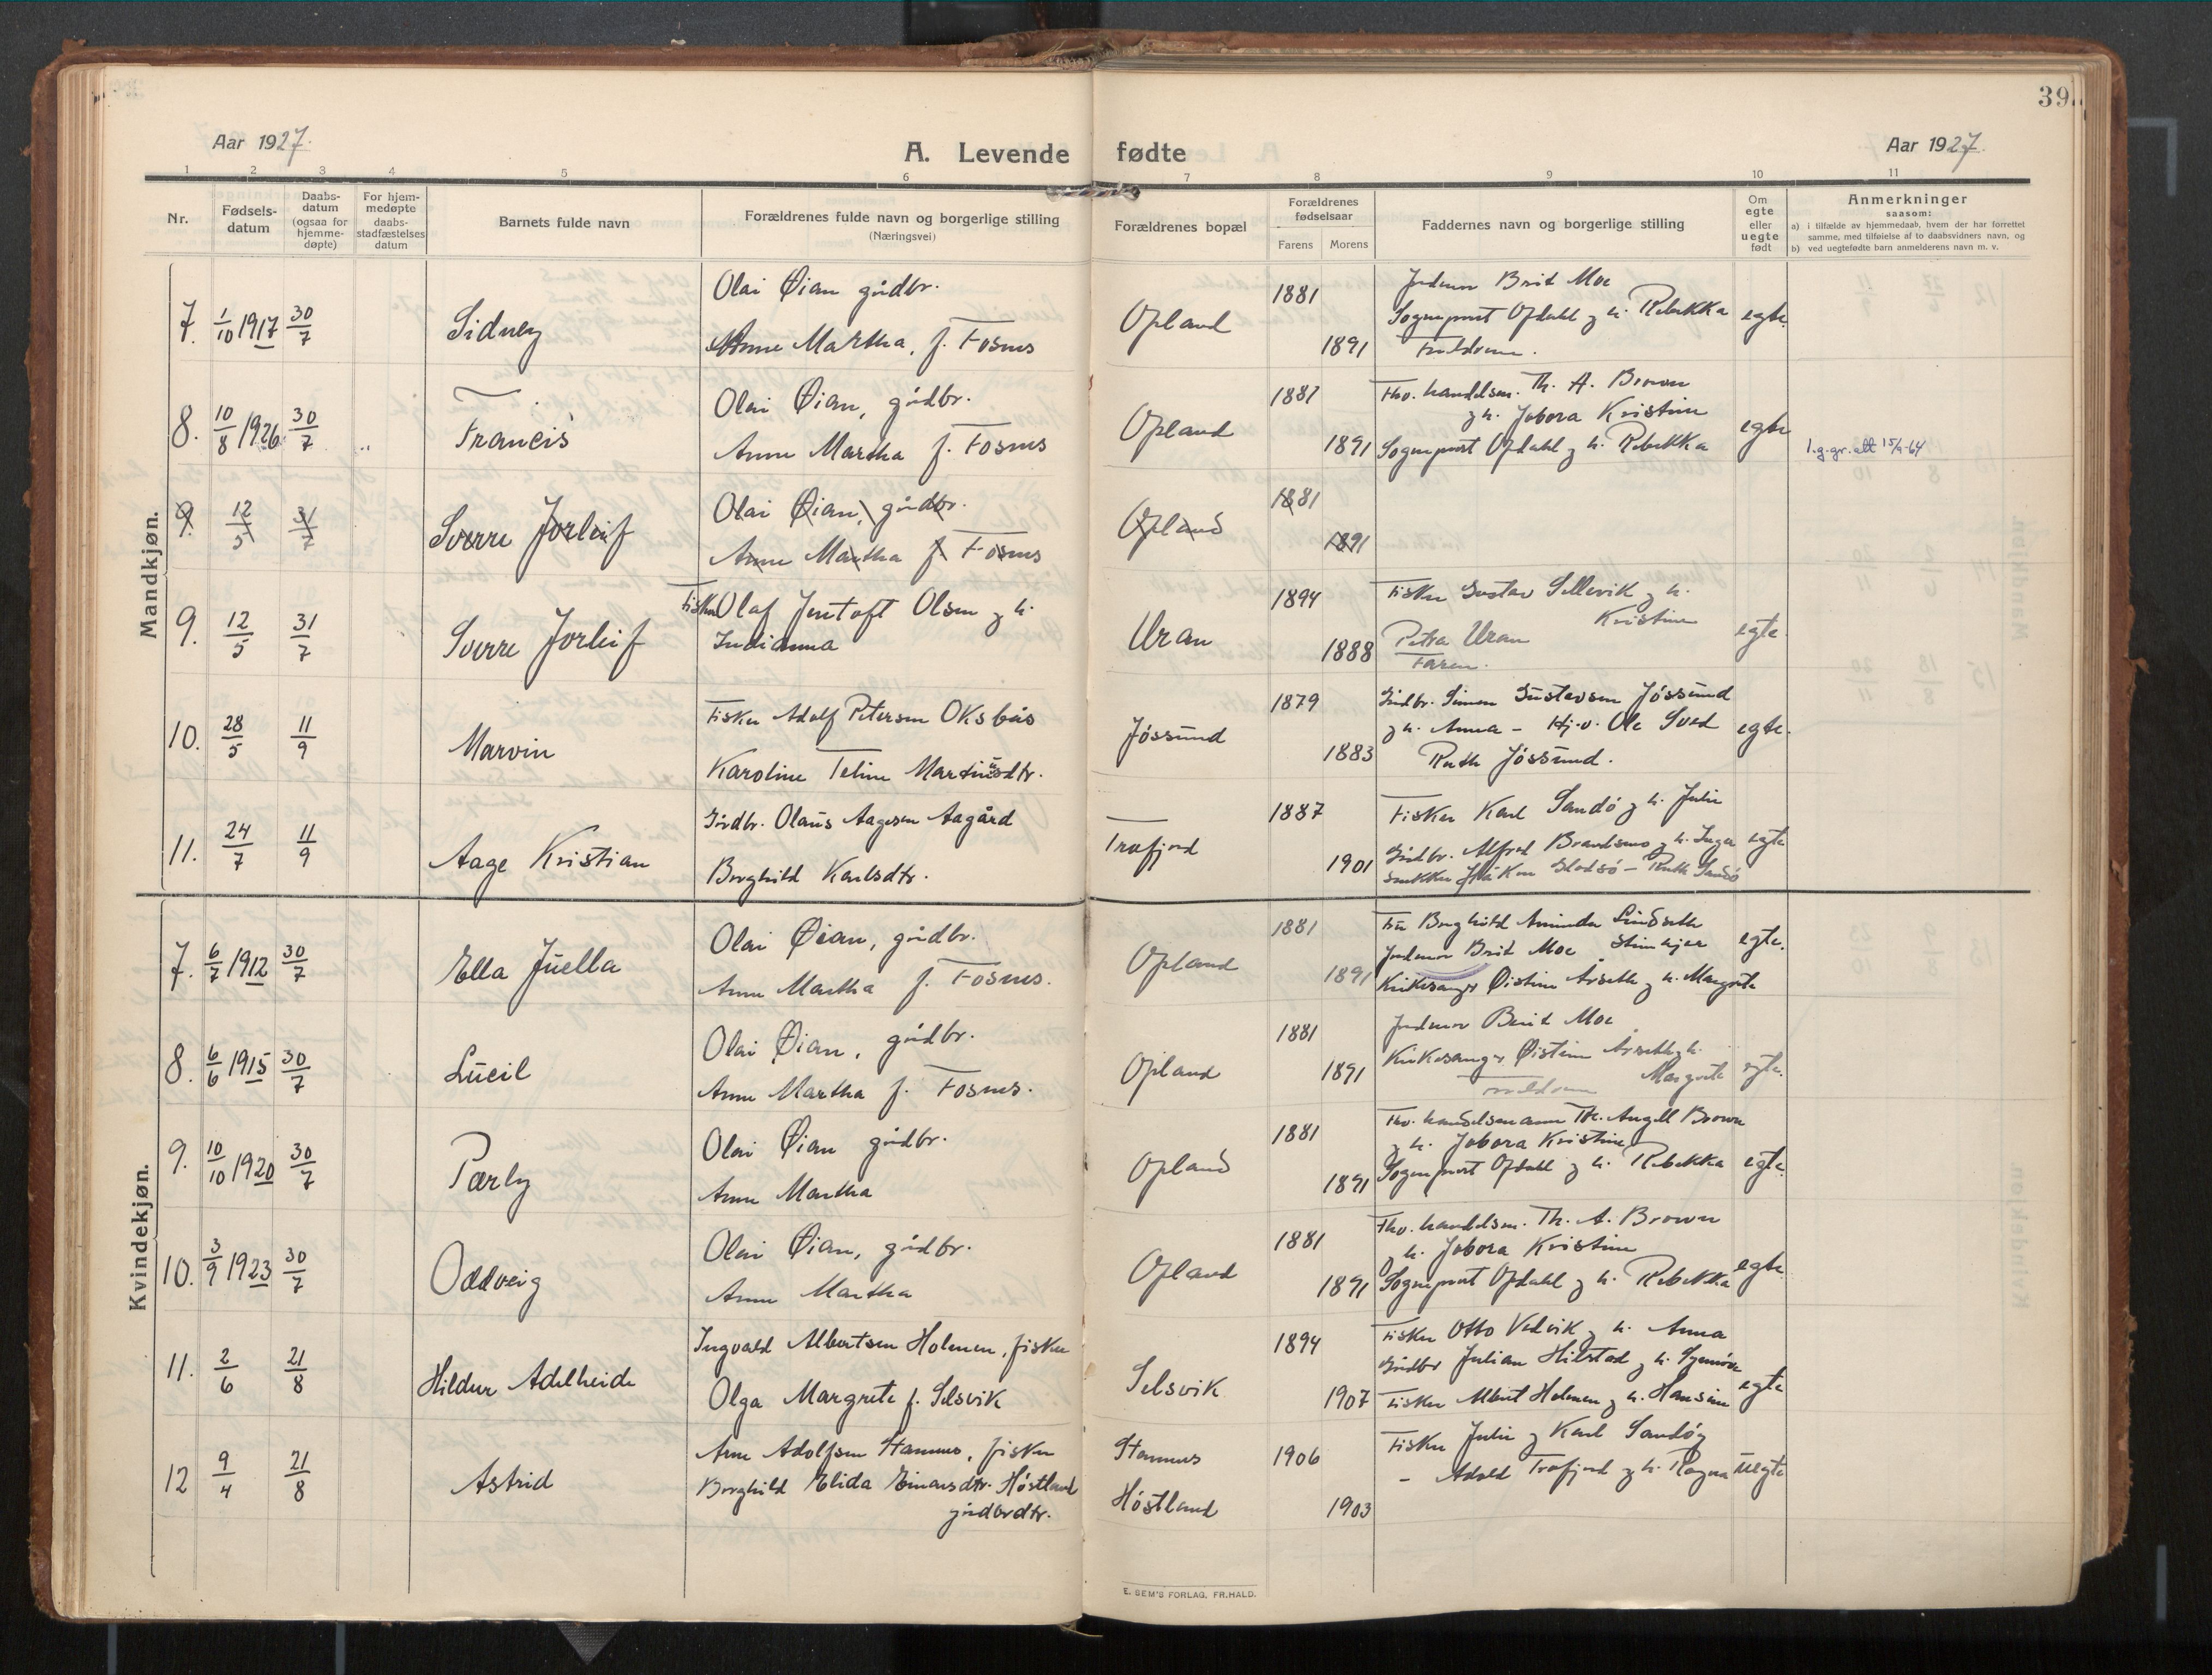 39.
Aar 1927.
A. Levende fødte
Aar 1927.
1 2 3 4 5 6 7 8 9 10 11
Nr.
Fødsels-datum
Daabs-datum (ogsaa for hjemme-døpte)
For hjem-medøpte daabs-stadfæstelses datum
Barnets fulde navn
Forældrenes fulde navn og borgerlige stilling
(Næringsvei)
Forældrenes bopæl
Forældrenes fødselsaar
Farens Morens
Faddernes navn og borgerlige stilling
Om egte eller uegte født
Anmerkninger
saasom:
a) i tilfælde av hjemmedaab, hvem der har forrettet samme, med tilføielse af to daabsvidners navn, og
b) ved uegtefødte barn anmelderens navn m. v.
Mandkjøn.
7. 1/10 1917 30/7 Sidney Olai Øian gårdbr. Opland 1881 Jordmor Brit Moe
Anne Martha, f. Fosnes 1891 Sogneprest Opdahl og h. Rebekka egte.
Foreldrene.
8. 10/8 1926 30/7 Francis Olai Øian, gårdbr. Opland 1881 Fhv. handelsm. Th. A. Brown
og h. Jobora Kristine
Anne Martha f. Fosnes 1891 Sogneprest Opdahl og h. Rebekka egte 1.g.gr. att 15/9-64
9. 12/5 31/7 Sverre Jorleif Olai Øian, gårdbr. Opland 1881
Anne Martha f. Fosnes 1891
9. 12/5 31/7 Sverre Jorleif Fisker Olaf Jentoft Olsen og h. Uran 1894 Fisker Gustav Sellevik og h.
Kristine
Indianna 1888 Petra Uran egte.
Faren.
10. 28/5 11/9 Marvin Fisker Adolf Petersen Oksbås Jøssund 1879 Gårdbr. Simon Gustavsen Jøssund
og h. Anna - Hj.v. Ole Sved egte.
Karoline Teline Martinusdtr. 1883 Ruth Jøssund.
11. 24/7 11/9 Aage Kristian Gårdbr. Olaus Aagesen Aagård Trafjord 1887 Fisker Karl Sandø og h. Julie
Borghild Karlsdtr. 1901 Gårdbr. Alfred Brandsmo og h. Inga egte
Snekker Håkon Gladsø - Ruth Sandø
Kvindekjøn.
7. 6/7 1912 30/7 Ella Juella Olai Øian, gårdbr. Opland 1881 Fru Borghild Aminda Lindseth
Jordmor Brit Moe Steinkjer egte.
Anne Martha f. Fosnes. 1891 Kirkesanger Øistein Årseth og h. Margrete
8. 6/6 1915 30/7 Lucil Olai Øian, gårdbr. Opland 1881 Jordmor Berit Moe
Kirkesanger Øistein Årseth og h.
Anne Martha f. Fosnes. 1891 Margrete egte.
9. 10/10 1920 30/7 Pærly Olai Øian gårdbr. Opland 1881 Fhv. handelsmann Th. Angell Brown
og h. Jobora Kristine
Anne Martha 1891 Sogneprest Opdahl og h. Rebekka egte.
10. 3/9 1923 30/7 Oddveig Olai Øian, gårdbr. Opland 1881 Fhv. handelsm. Th. A. Brown
og h. Jobora Kristine
Anne Martha 1891 Sogneprest Opdahl og h. Rebekka egte
11. 2/6 21/8 Hildur Adelheide Ingvald Albertsen Holmen, fisker Selsvik 1894 Fisker Otto Vedvik og h. Anna
Gårdbr Julian Hilstad og h. Synnøve
Olga Margrete f. Selsvik 1907 Fisker Albert Holmen og h. Hansine egte
12 9/4 21/8 Astrid Arne Adolfsen Stamnes, fisker Stamnes 1906 Fisker Julie og Karl Sandøy
Borghild Elida Einarsdtr. Høstland Høstland 1903 - Adold Trafjord og h. Ragna uegte
gårdbrdtr.
E. SEM'S FORLAG. FR.HALD.